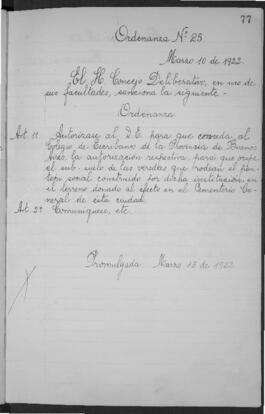 77
Ordenanza Nº 25.
Marzo 10 de 1922.
El H. Concejo Deliberativo, en uso de
sus facultades, sanciona la siguiente -
Ordenanza
Art. 1º Autorízase al D. E. para que conceda al
Colegio de Escribanos de la Provincia de Buenos
Aires, la autorización respectiva, para que ocupe
el sub-suelo de las veredas que rodean el pan-
teón social construido por dicha institución, en
el terreno donado al efecto en el Cementerio Ge-
neral de esta ciudad.
Art. 2º Comuníquese, etc.
Promulgada Marzo 13 de 1922